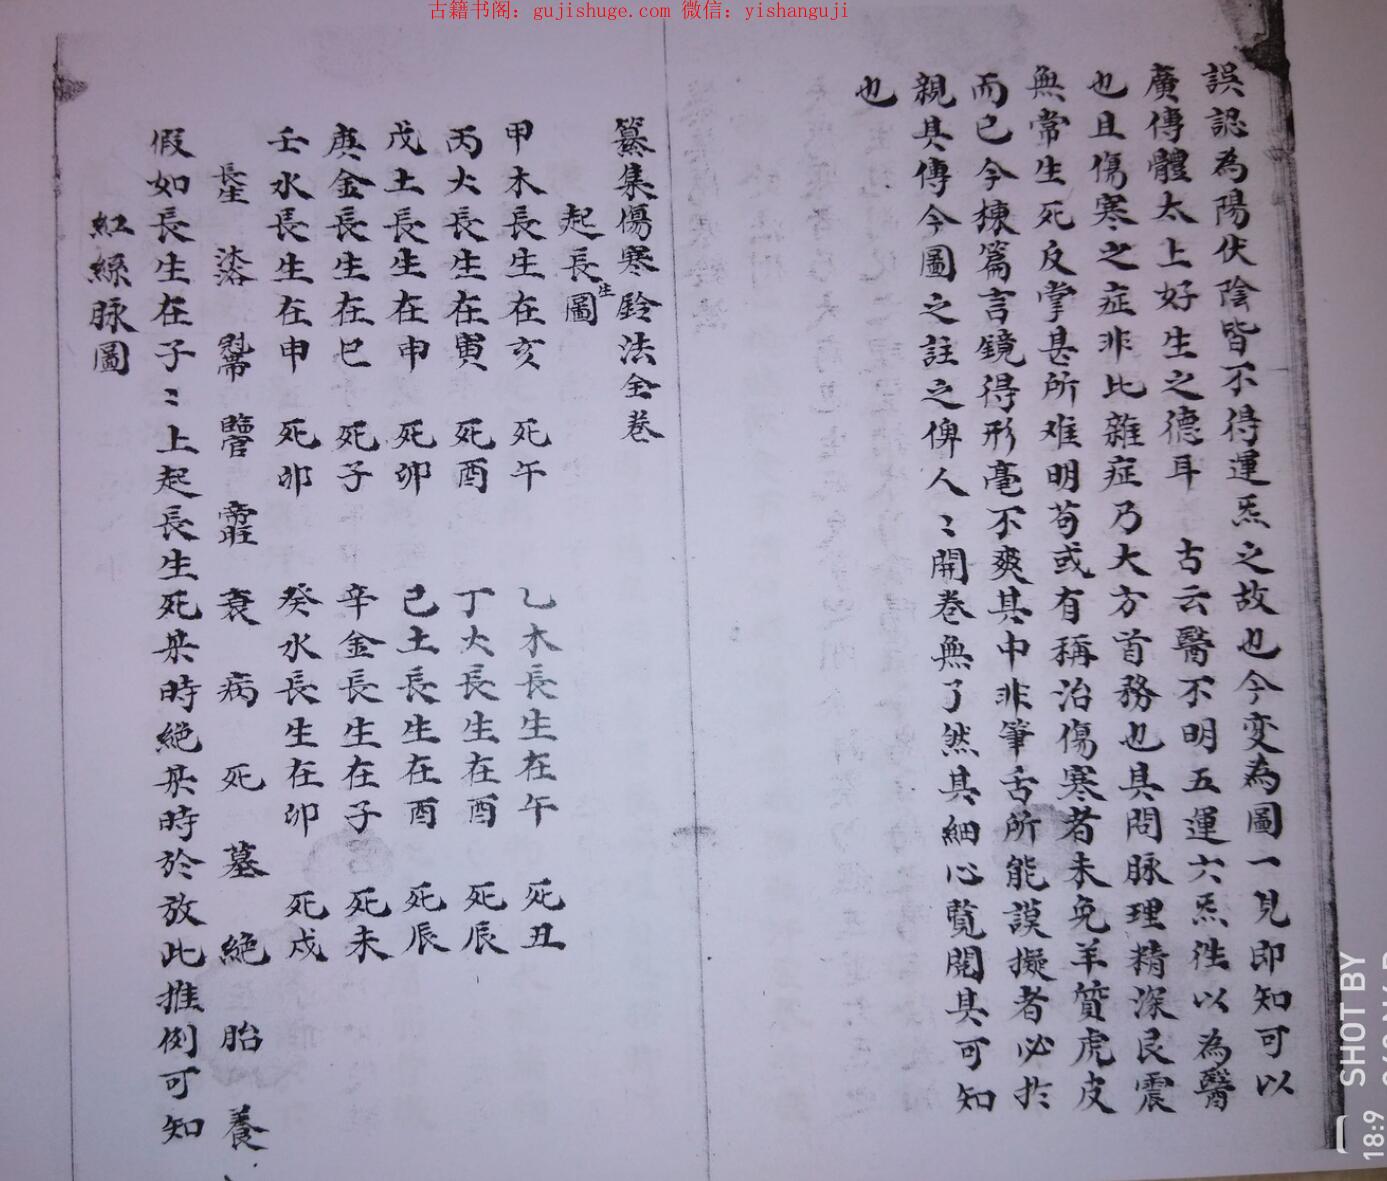 古籍书阁：gujishuge.com 微信：yishanguji
誤認為陽伏陰皆不得運炁之故也今変為圖一見即知可以
廣傳體太上好生之德耳 古云醫不明五運六炁徃以為醫
也且傷寒之症非比雜症乃大方首務也其問脉理精深艮震
無常生死反掌甚所难明苟或有稱治傷寒者未免羊質虎皮
而已今揀篇言鏡得形毫不爽其中非筆舌所能謨擬者必扵
親其傳今圖之註之俾人〻開卷無了然其細心覽閱其可知
也
纂集傷寒鈴法全卷
起長生圖
甲木長生在亥 死午 乙木長生在午 死丑
丙火長生在寅 死酉 丁火長生在酉 死辰
戊土長生在申 死卯 己土長生在酉 死辰
庚金長生在巳 死子 辛金長生在子 死未
壬水長生在申 死卯 癸水長生在卯 死戍
長生 沐浴 冠帶 臨官 帝旺 衰 病 死 墓 絕 胎 養
假如長生在子〻上起長生死某時絕某時於放此推例可知
紅線脉圖
SHOT BY
18:9